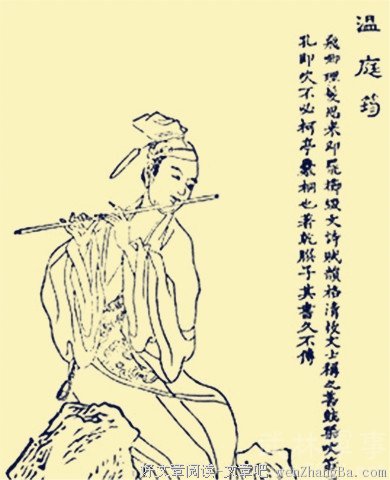 温庭筠
飛卿理髮思來即罷櫛綴文詩賦韻格清拔文士稱之善鼓琴吹
孔即吹不必柯亭爨桐也著乾𦠆子其書久不傳
好文章阅读-文章吧 wenZhangBa.Com